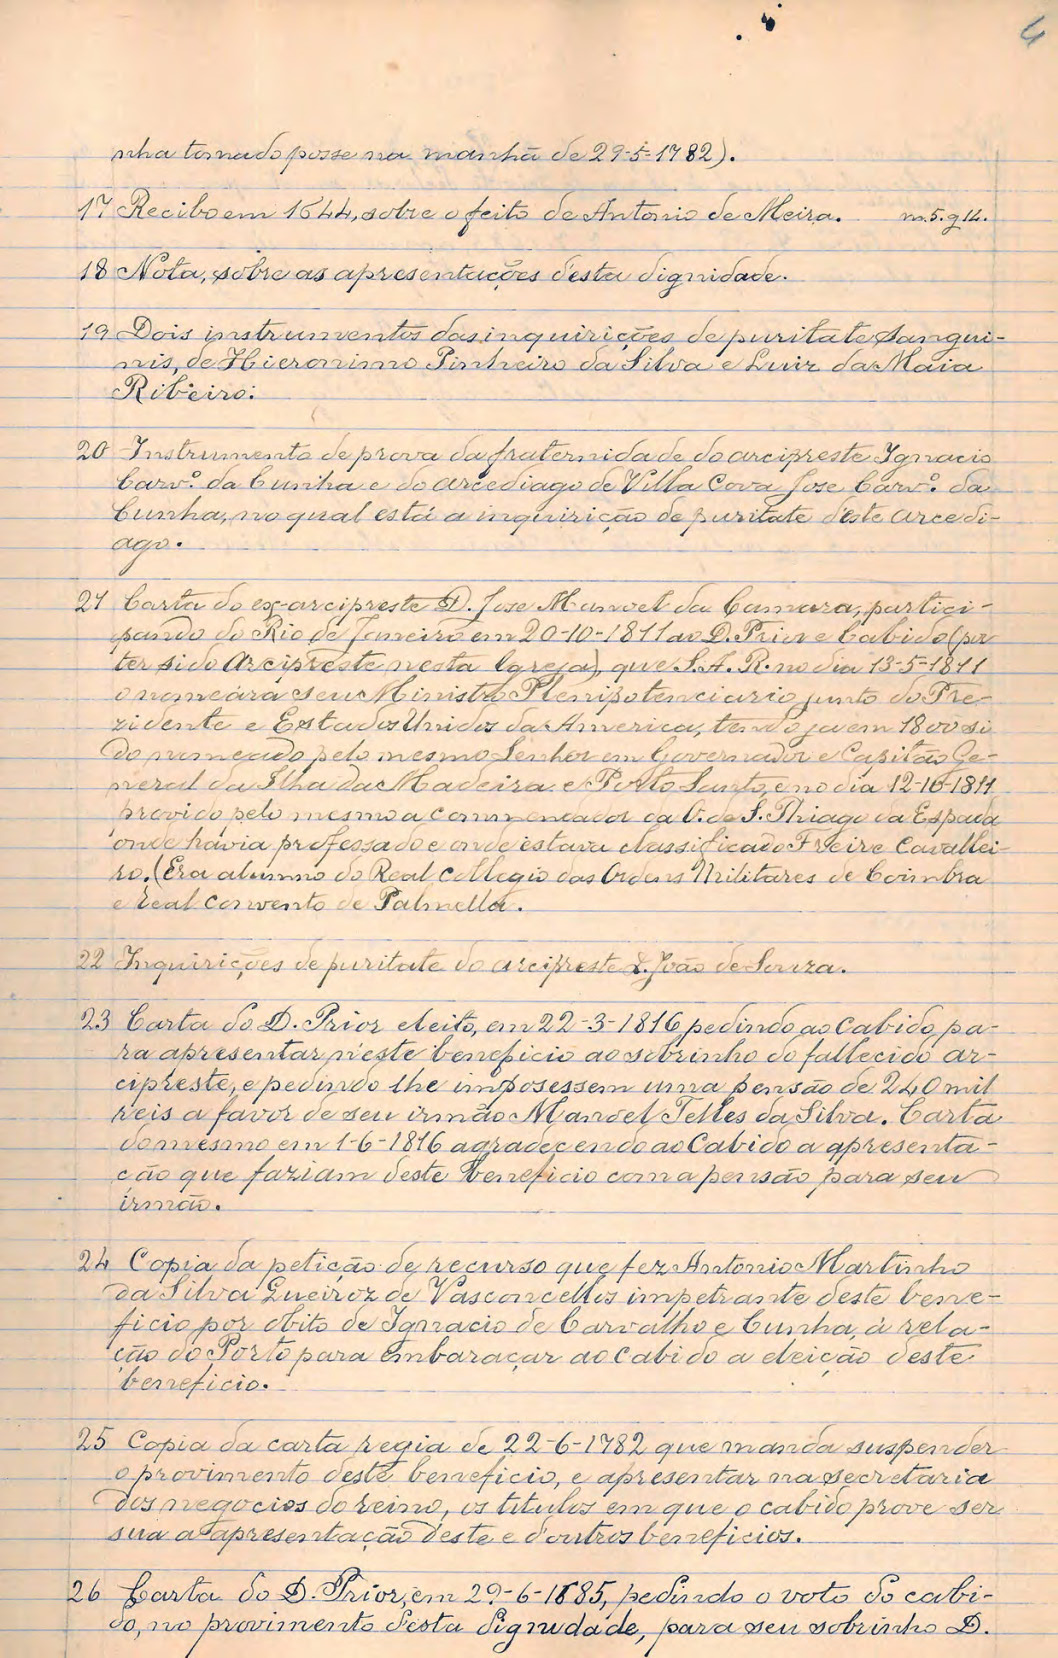 4
nha tomado posse na manhã de 29-5-1782).
17 Recibo em 1644, sobre o feito de Antonio de Meira. m. 5. g 14.
18 Nota, sobre as apresentações desta dignidade.
19 Dois instrumentos das inquirições de puritate sangui-
nis, de Hieronimo Pinheiro da Silva e Luiz da Maia
Ribeiro.
20 Instrumento de prova da fraternidade do arcipreste Ignacio
Carv.º da Cunha e do arcediago de Villa Cova Jose Carv.º da
Cunha, no qual está a inquirição de puritate d'este arcedi-
ago.
21 Carta do ex-arcipreste D. Jose Manoel da Camara, partici-
pando do Rio de Janeiro em 20-10-1811 ao D. Prior e Cabido (por
ter sido Arcipreste nesta Igreja), que S. A. R. no dia 13-5-1811
o nomeára seu Ministro Plenipotenciario junto do Pre-
zidente e Estados Unidos da America, tendo ja em 1800 si
do nomeado pelo mesmo Senhor em Governador e Capitão Ge-
neral da Ilha da Madeira e Porto Santo, e no dia 12-10-1811
provido pelo mesmo a commendador da O. de S. Thiago da Espada
onde havia professado e onde estava classificado Freire Cavallei-
ro. (Era alumno do Real Collegio das Ordens Militares de Coimbra
e Real Convento de Palmella.
22 Inquirições de puritate do arcipreste D. João de Souza.
23 Carta do D. Prior eleito, em 22-3-1816 pedindo ao Cabido, pa-
ra apresentar n'este beneficio ao sobrinho do fallecido ar-
cipreste, e pedindo lhe impozessem uma pensão de 240 mil
reis a favor de seu irmão Manoel Telles da Silva. Carta
do mesmo em 1-6-1816 agradecendo ao Cabido a apresenta-
ção que faziam deste beneficio com a pensão para seu
irmão.
24 Copia da petição de recurso que fez Antonio Martinho
da Silva Queiroz de Vasconcellos impetrante deste bene-
ficio por obito de Ignacio de Carvalho e Cunha, á rela-
ção do Porto para embaraçar ao Cabido a eleição deste
beneficio.
25 Copia da carta regia de 22-6-1782 que manda suspender
o provimento deste beneficio, e apresentar na secretaria
dos negocios do reino, os titulos em que o cabido prove ser
sua a apresentação deste e d'outros beneficios.
26 Carta do D. Prior, em 29-6-1885, pedindo o voto do cabi-
do, no provimento desta dignidade, para seu sobrinho D.